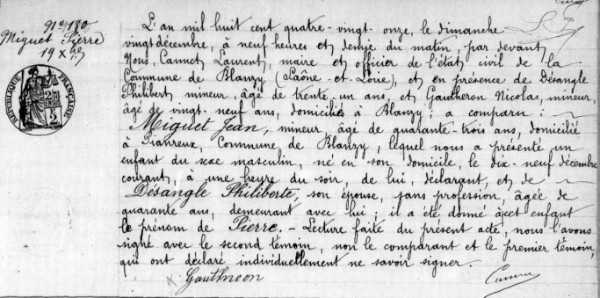 N° 180
Miguet Pierre
19 Xbre
RÉPUBLIQUE FRANÇAISE
L'an mil huit cent quatre-vingt onze, le dimanche
vingt décembre, à neuf heures et demie du matin, par devant
Nous, Cannet Laurent, maire et officier de l'état civil de la
Commune de Blanzy (Saône-et-Loire), et en présence de Désangle
Philibert, mineur, âgé de trente-un ans, et Gautheron Nicolas, mineur,
âgé de vingt-neuf ans, domiciliés à Blanzy; a comparu:
Miguet Jean, mineur âgé de quarante-trois ans, domicilié
à Commune de Blanzy, lequel nous a présenté un
enfant du sexe masculin, né en son domicile, le dix-neuf décembre
courant, à une heure du soir, de lui, déclarant, et de
Désangle Philiberte, son épouse, sans profession, âgée de
quarante ans, demeurant avec lui; il a été donné à cet enfant
le prénom de Pierre. - Lecture faite du présent acte, nous l'avons
signé avec le second témoin, non le comparant et le premier témoin,
qui ont déclaré individuellement ne savoir signer.
Gautheron